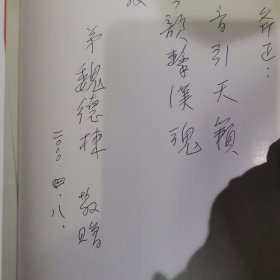 斧正:
音引天籟
韻擊漢魂
弟魏德棟 敬贈
二〇〇〇.四.八.